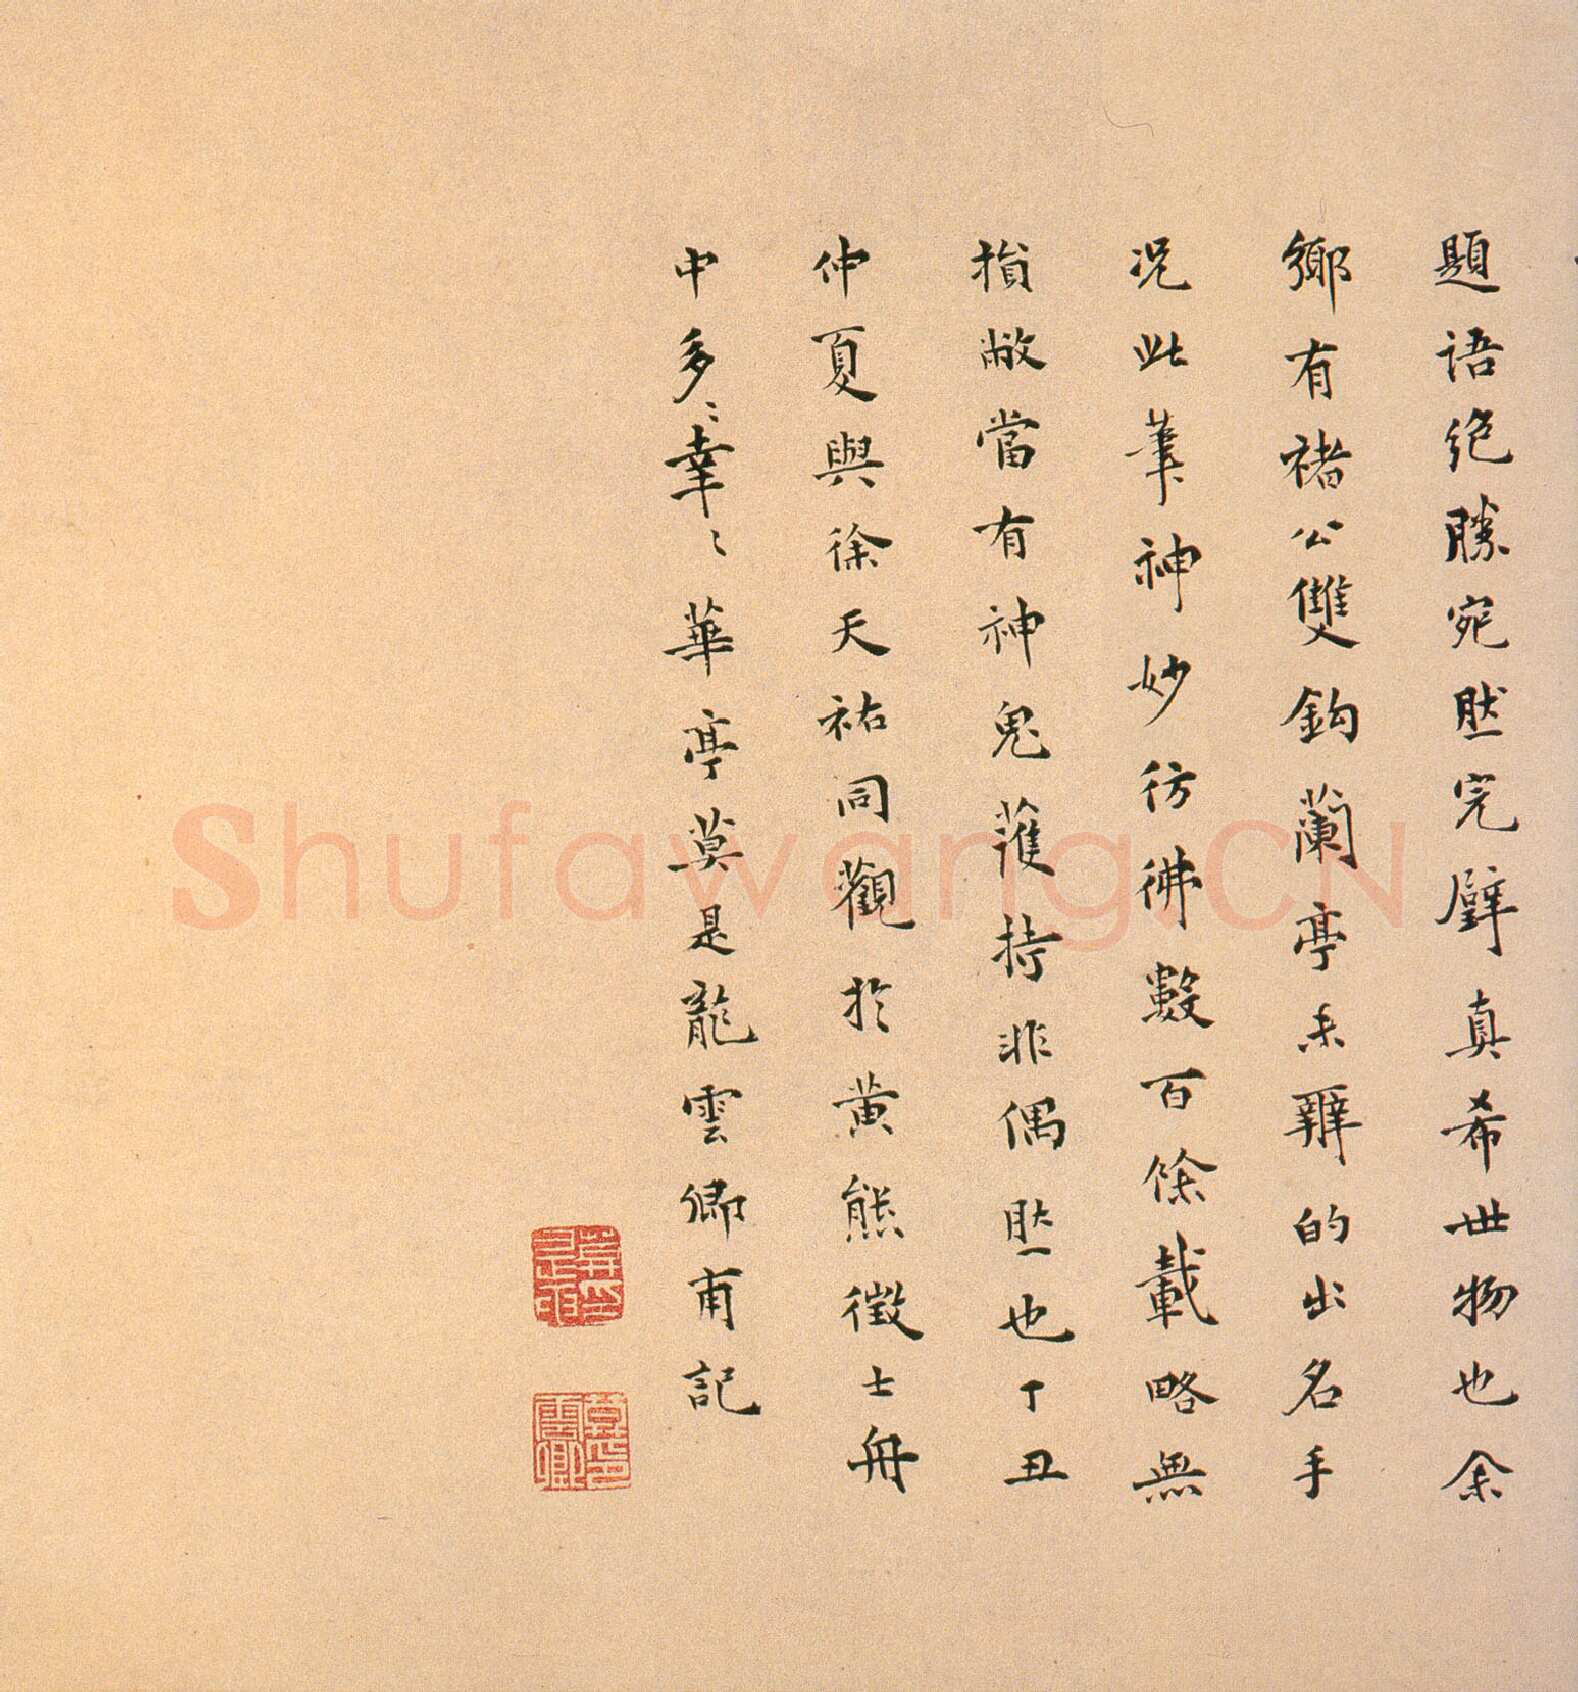 題語絶勝宛然完璧真希世物也余
鄉有褚公雙鈎蘭亭未辦的出名手
况此筆神妙彷彿數百餘載略無
損敝當有神鬼護持非偶然也丁丑
仲夏與徐天祐同觀於黄熊徵士舟
中多〻幸〻華亭莫是龍雲卿甫記
莫雲卿印
Shufawang.CN